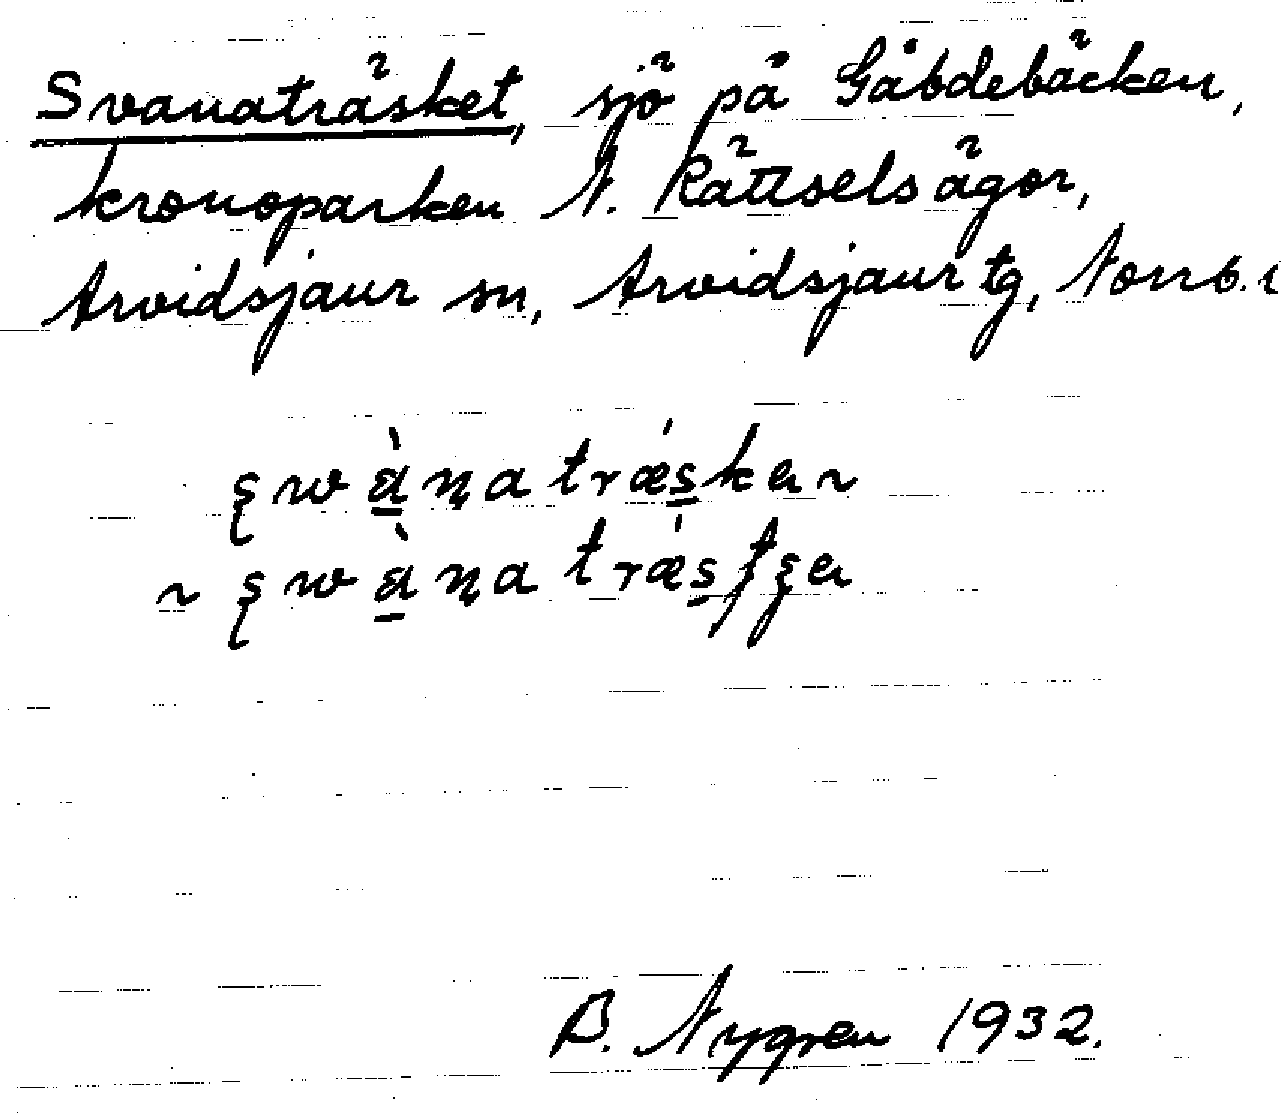 Svanaträsket, sjö på Gåbdebäcken,
kronoparken N. Rättselsägor,
Arvidsjaur sn, Arvidsjaur tg, Norrb. l
ȿwànatræ´sken ~
~ ȿwànatræ´stȿen
B. Nygren 1932.